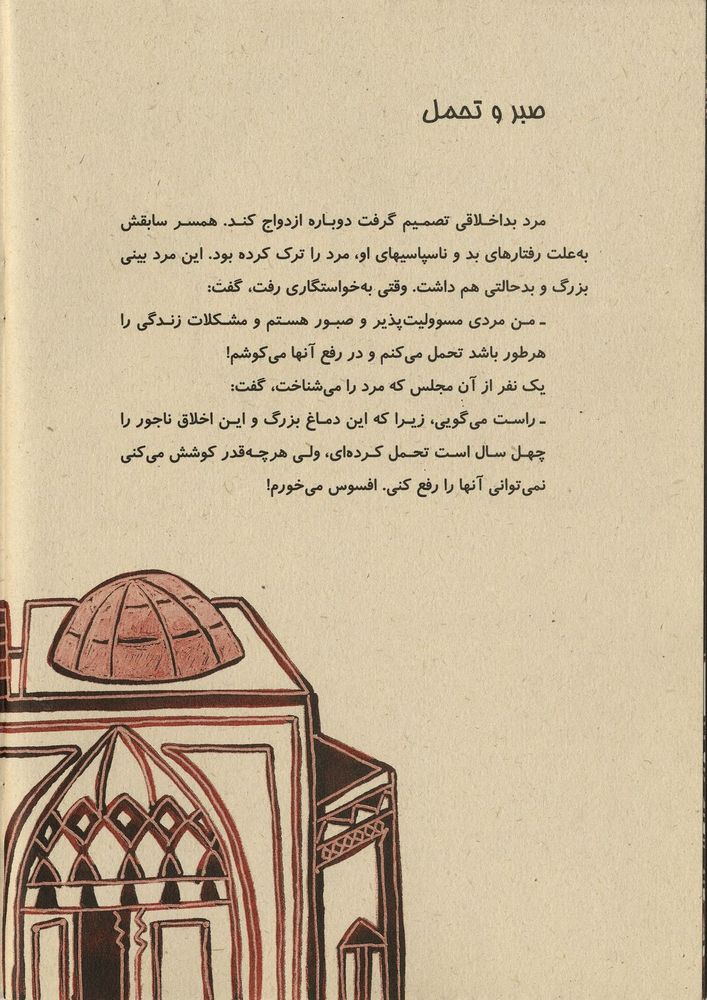 صبر و تحمل
مرد بداخلاقی تصمیم گرفت دوباره ازدواج کند. همسر سابقش
به‌علت رفتارهای بد و ناسپاسیهای او، مرد را ترک کرده بود. این مرد بینی
بزرگ و بدحالتی هم داشت. وقتی به‌خواستگاری رفت، گفت:
ـ من مردی مسوولیت‌پذیر و صبور هستم و مشکلات زندگی را
هرطور باشد تحمل می‌کنم و در رفع آنها می‌کوشم!
یک نفر از آن مجلس که مرد را می‌شناخت، گفت:
ـ راست می‌گویی، زیرا که این دماغ بزرگ و این اخلاق ناجور را
چهل سال است تحمل کرده‌ای، ولی هرچه‌قدر کوشش می‌کنی
نمی‌توانی آنها را رفع کنی. افسوس می‌خورم!